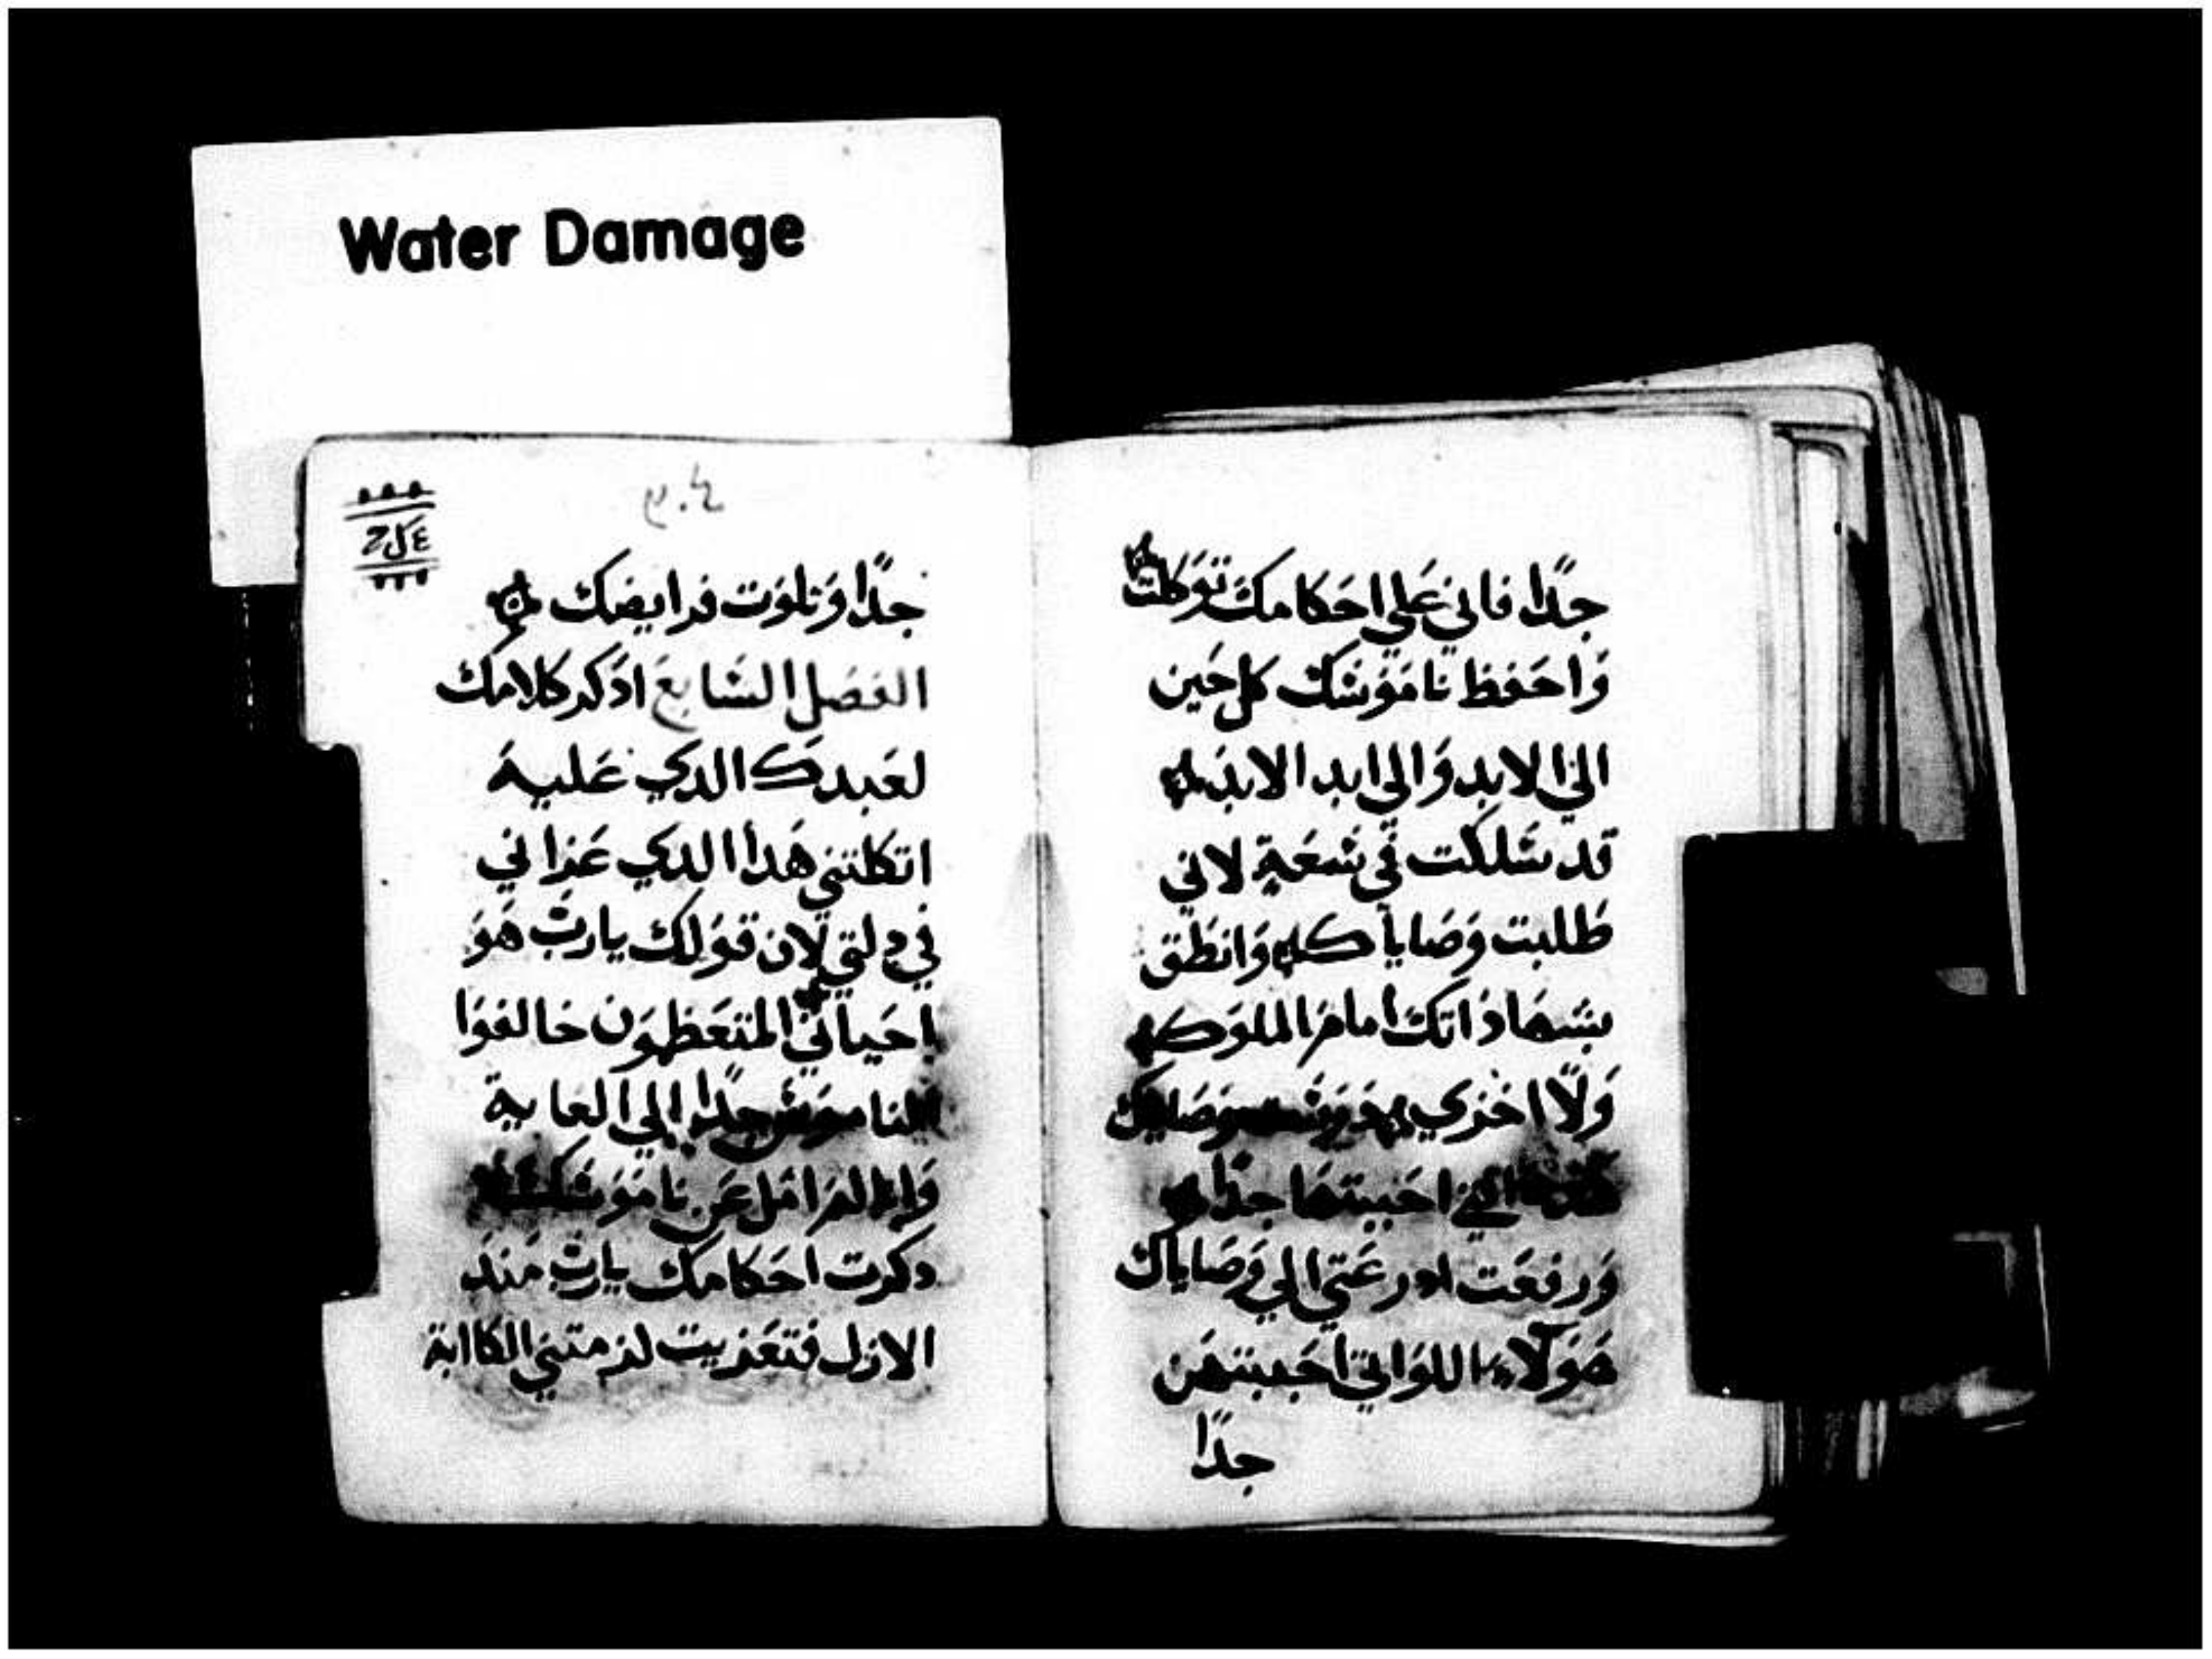 Water Damage
جدًا فاني علي احكامك توكلت
وَاحفظ نامَوسَك كل حين
الي الابد وَالي ابد الابد
قد سَلكت في سَعَة لاني
طلبت وَصاياك وَانطق
بشهاداتك امام الملوك
وَلا اخزي وَصاياك
احببتها جدًا
وَرفعَت ادرعَتي الي وَصاياك
هَولاء اللوَاتي احببتهَن
جدًا
٢٠٤
جدًا وَتلوَت فرايضك
الفصل السَابع ادكر كلامك
لعَبدك الدي عَليه
اتكلتني هَدا الدي عَزاني
في دلتي لان قوَلك يارب هَوَ
احيَاني المتعَظموَن خالفوَا
النامَوسَ جدًا الي الغاية
وَانا لم امَل عَن نامَوسَك
دكرت احكامك يارب مَند
الازل فتعَزيت لزمتني الكاابة